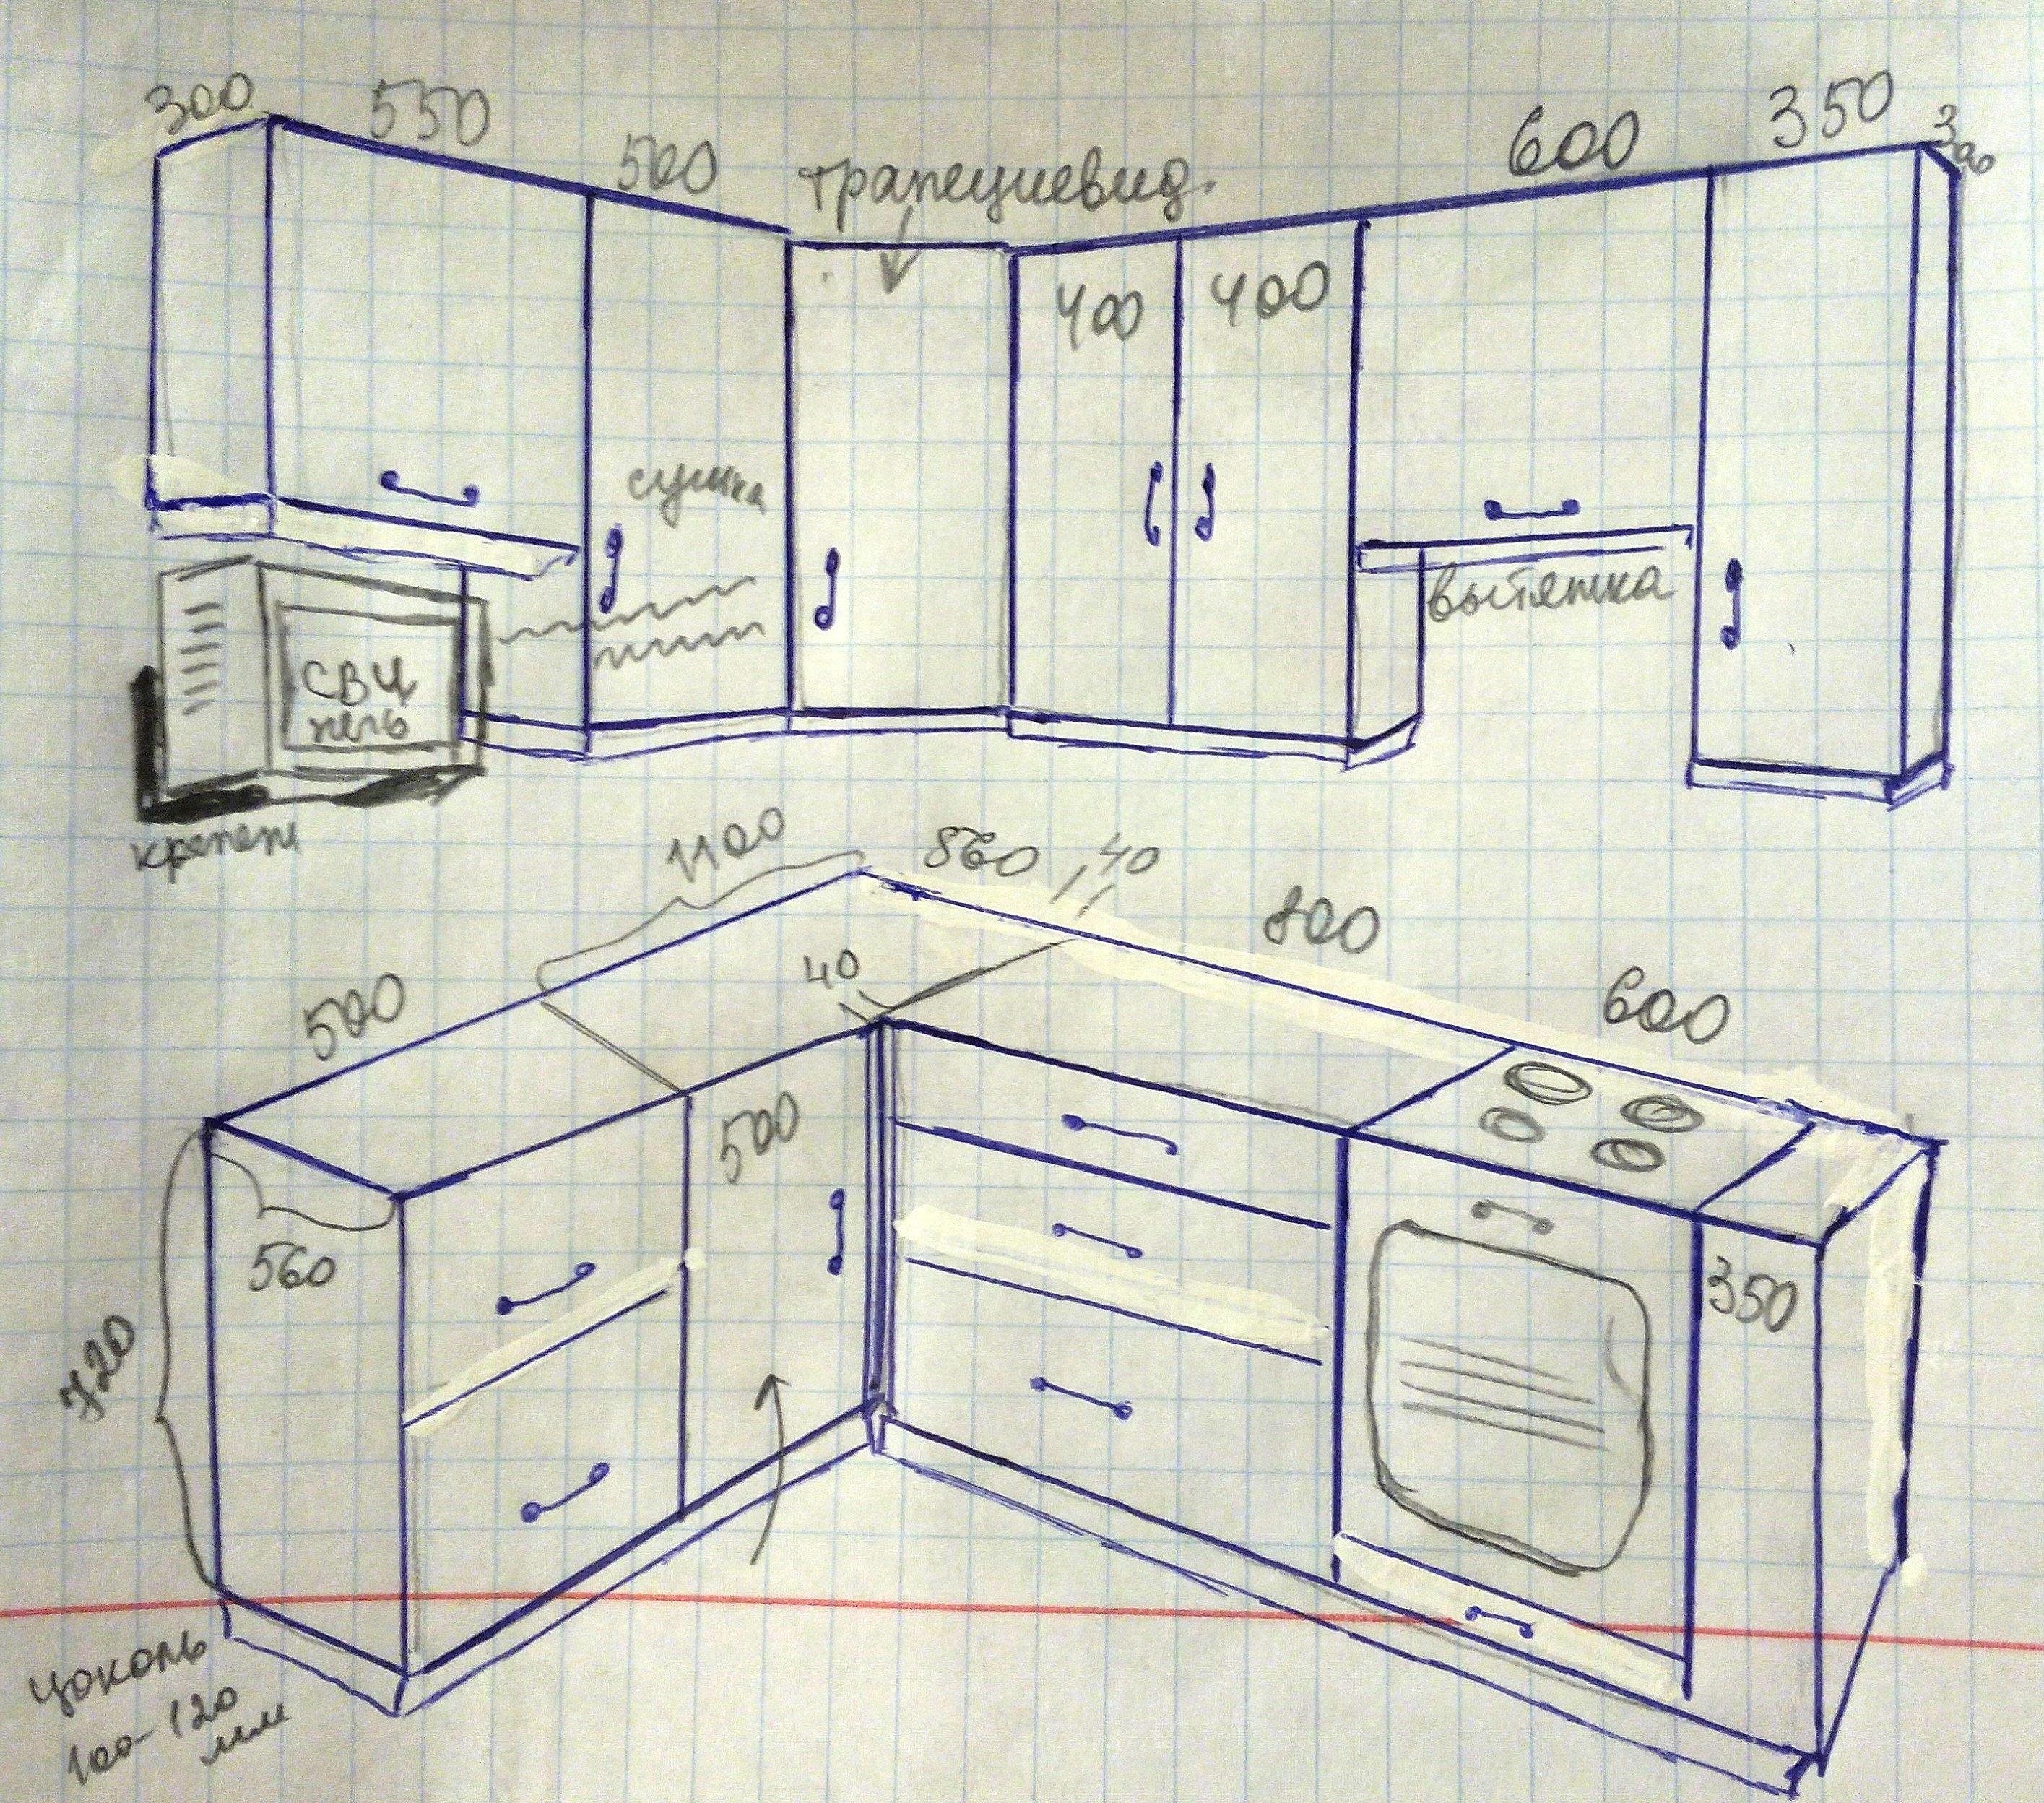 300
550
500
трапециевид.
600
350
300
400
400
сушка
вытяжка
СВЧ
печь
крепеж
1100
560
40
800
40
600
500
500
560
350
720
цоколь
100-120
мм